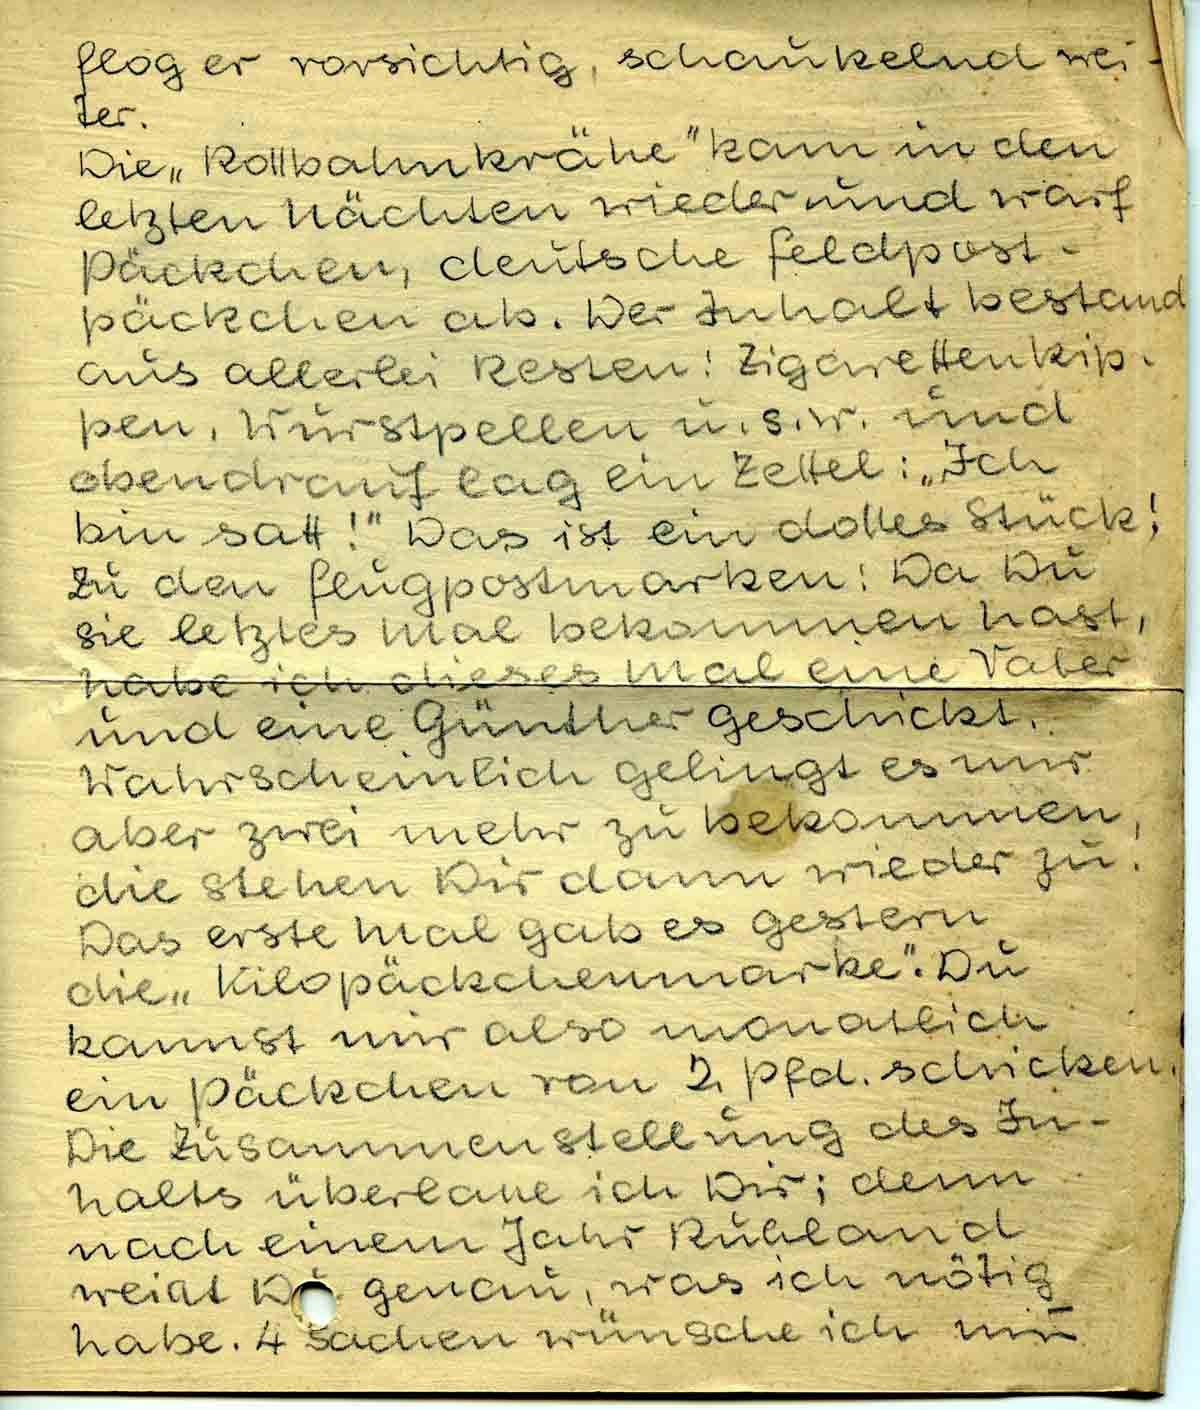 flog er vorsichtig, schaukelnd wei-
ter.
Die „Rollbahnkrähe" kam in den
letzten Nächten wieder und warf
Päckchen, deutsche Feldpost-
päckchen ab. Der Inhalt bestand
aus allerlei Resten: Zigarettenkip-
pen, Wurstpellen u.s.w. und
obendrauf lag ein Zettel: „Ich
bin satt!" Das ist ein dolles Stück!
Zu den Flugpostmarken: Da Du
sie letztes Mal bekommen hast,
habe ich dieses Mal eine Vater
und eine Günther geschickt.
Wahrscheinlich gelingt es mir
aber zwei mehr zu bekommen,
die stehen Dir dann wieder zu.
Das erste Mal gab es gestern
die „Kilopäckchenmarke". Du
kannst mir also monatlich
ein Päckchen von 2 Pfd. schicken.
Die Zusammenstellung des In-
halts überlasse ich Dir; denn
nach einem Jahr Rußland
weißt Du genau, was ich nötig
habe. 4 Sachen wünsche ich mir